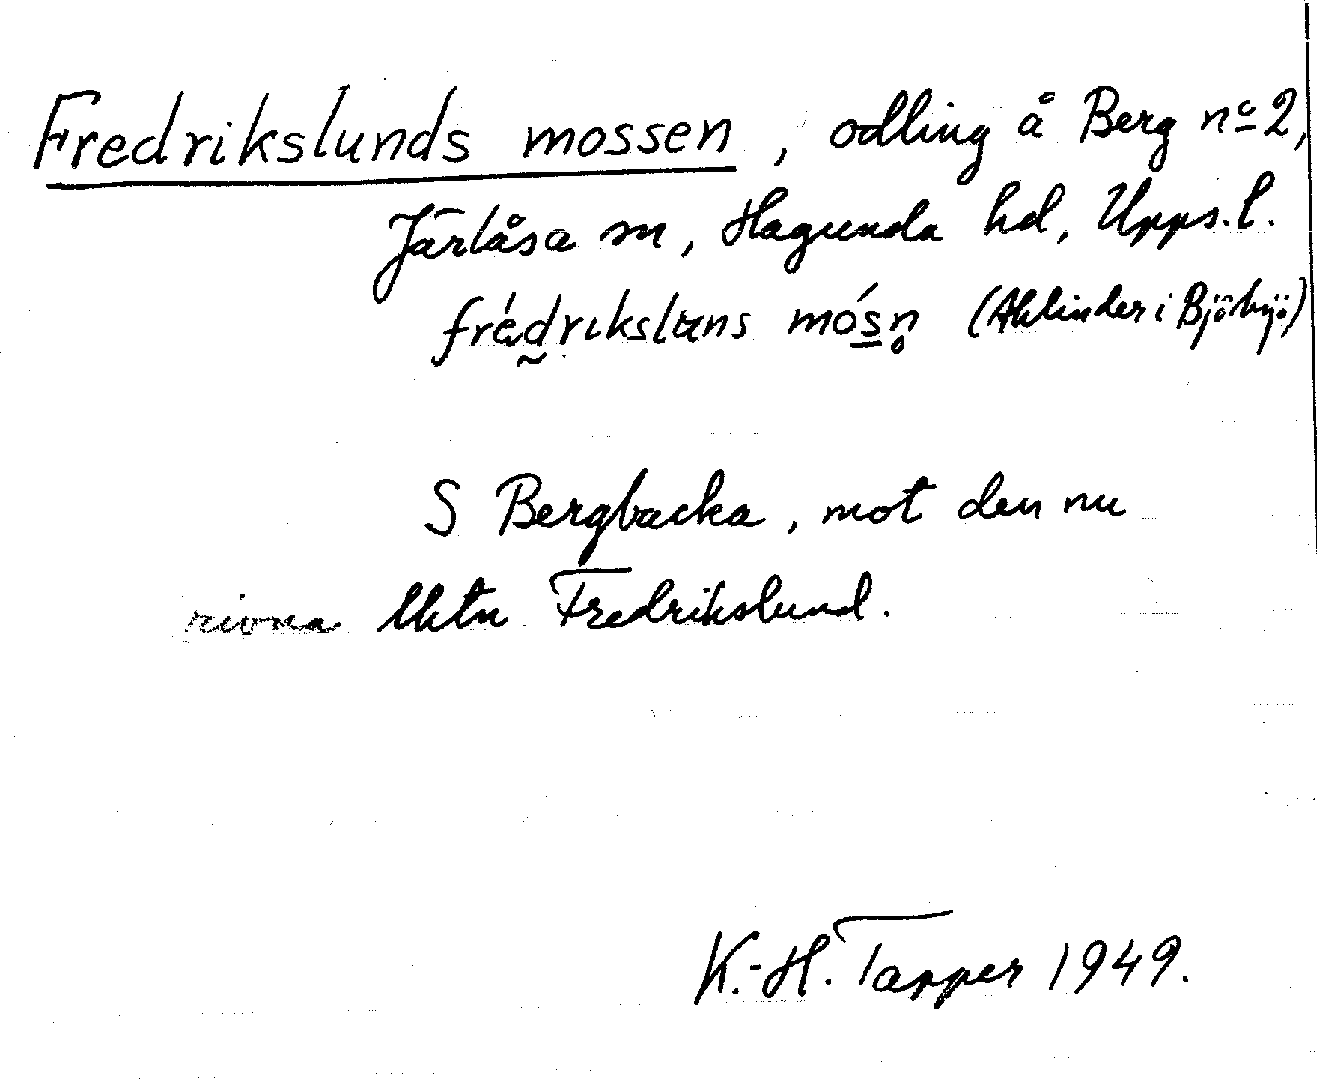 Fredrikslunds mossen, odling å Berg no 2,
Järlåsa sn, Hagunda hd, Upps.l.
frédriksluns mósn (Ahlinder i Björbyö)
S Bergbacka, mot den nu
rivna lhtn Fredrikslund.
K.-H. Tapper 1949.